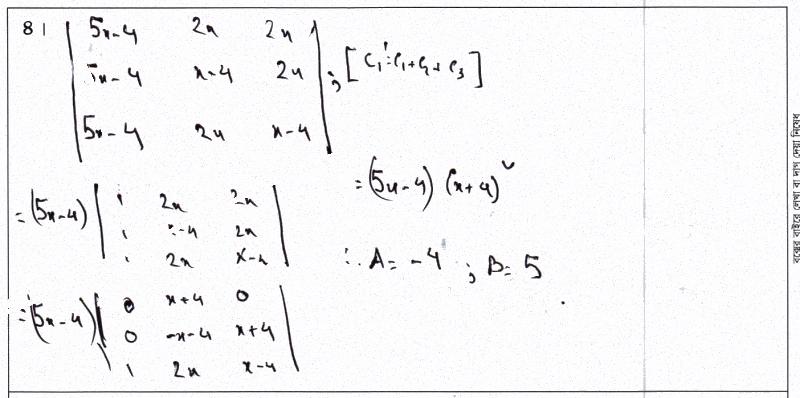 8|
| 5x-4 2x 2x |
| 5x-4 x-4 2x | ; [C₁' = C₁+C₂+C₃]
| 5x-4 2x x-4 |
= (5x-4) | 1 2x 2x |
| 1 x-4 2x |
| 1 2x x-4 |
= (5x-4) | 0 x+4 0 |
| 0 -x-4 x+4 |
| 1 2x x-4 |
= (5x-4) (x+4)²
∴ A = -4 ; B = 5
বক্সের বাইরে লেখা বা দাগ দেয়া নিষেধ